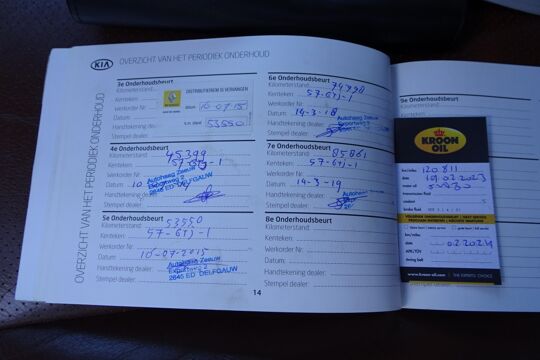 KIA OVERZICHT VAN HET PERIODIEK ONDERHOUD
OVERZICHT VAN HET PERIODIEK ONDERHOUD
3e Onderhoudsbeurt
Kilometerstand:
Kenteken:
Werkorder Nr
Datum
Handtekening dealer:
Stempel dealer:
DISTRIBUTIERIEM IS VERVANGEN
datum 10-07-15
km. stand 53550
4e Onderhoudsbeurt
Kilometerstand: 45399
Kenteken: 57-GTJ-1
Werkorder Nr
Datum 10
Handtekening dealer:
Stempel dealer:
Autobedrijf Zeeuw
Exportweg 2
2645 ED DELFGAUW
5e Onderhoudsbeurt
Kilometerstand: 53550
Kenteken: 57-GTJ-1
Werkorder Nr
Datum: 10-07-2015
Handtekening dealer:
Stempel dealer:
Exportweg 2
2645 ED DELFGAUW
6e Onderhoudsbeurt
Kilometerstand: 74990
Kenteken: 57-GTJ-1
Werkorder Nr
Datum 14-3-18
Handtekening dealer:
Stempel dealer:
7e Onderhoudsbeurt
Kilometerstand: 85861
Kenteken: 57-GTJ-1
Werkorder Nr
Datum: 14-3-19
Handtekening dealer:
Stempel dealer:
8e Onderhoudsbeurt
Kilometerstand:
Kenteken:
Werkorder Nr
Datum:
Handtekening dealer:
Stempel dealer:
14
9e Onderhoudsbeurt
Kilometerstand:
KROON
OIL
km/miles 120811
date
motor oil 5W30
transmission fluid
coolant
brake fluid
km/miles
date 02 2024
APK/TÜV
timing belt
www.kroon-oil.com THE EXPERTS' CHOICE